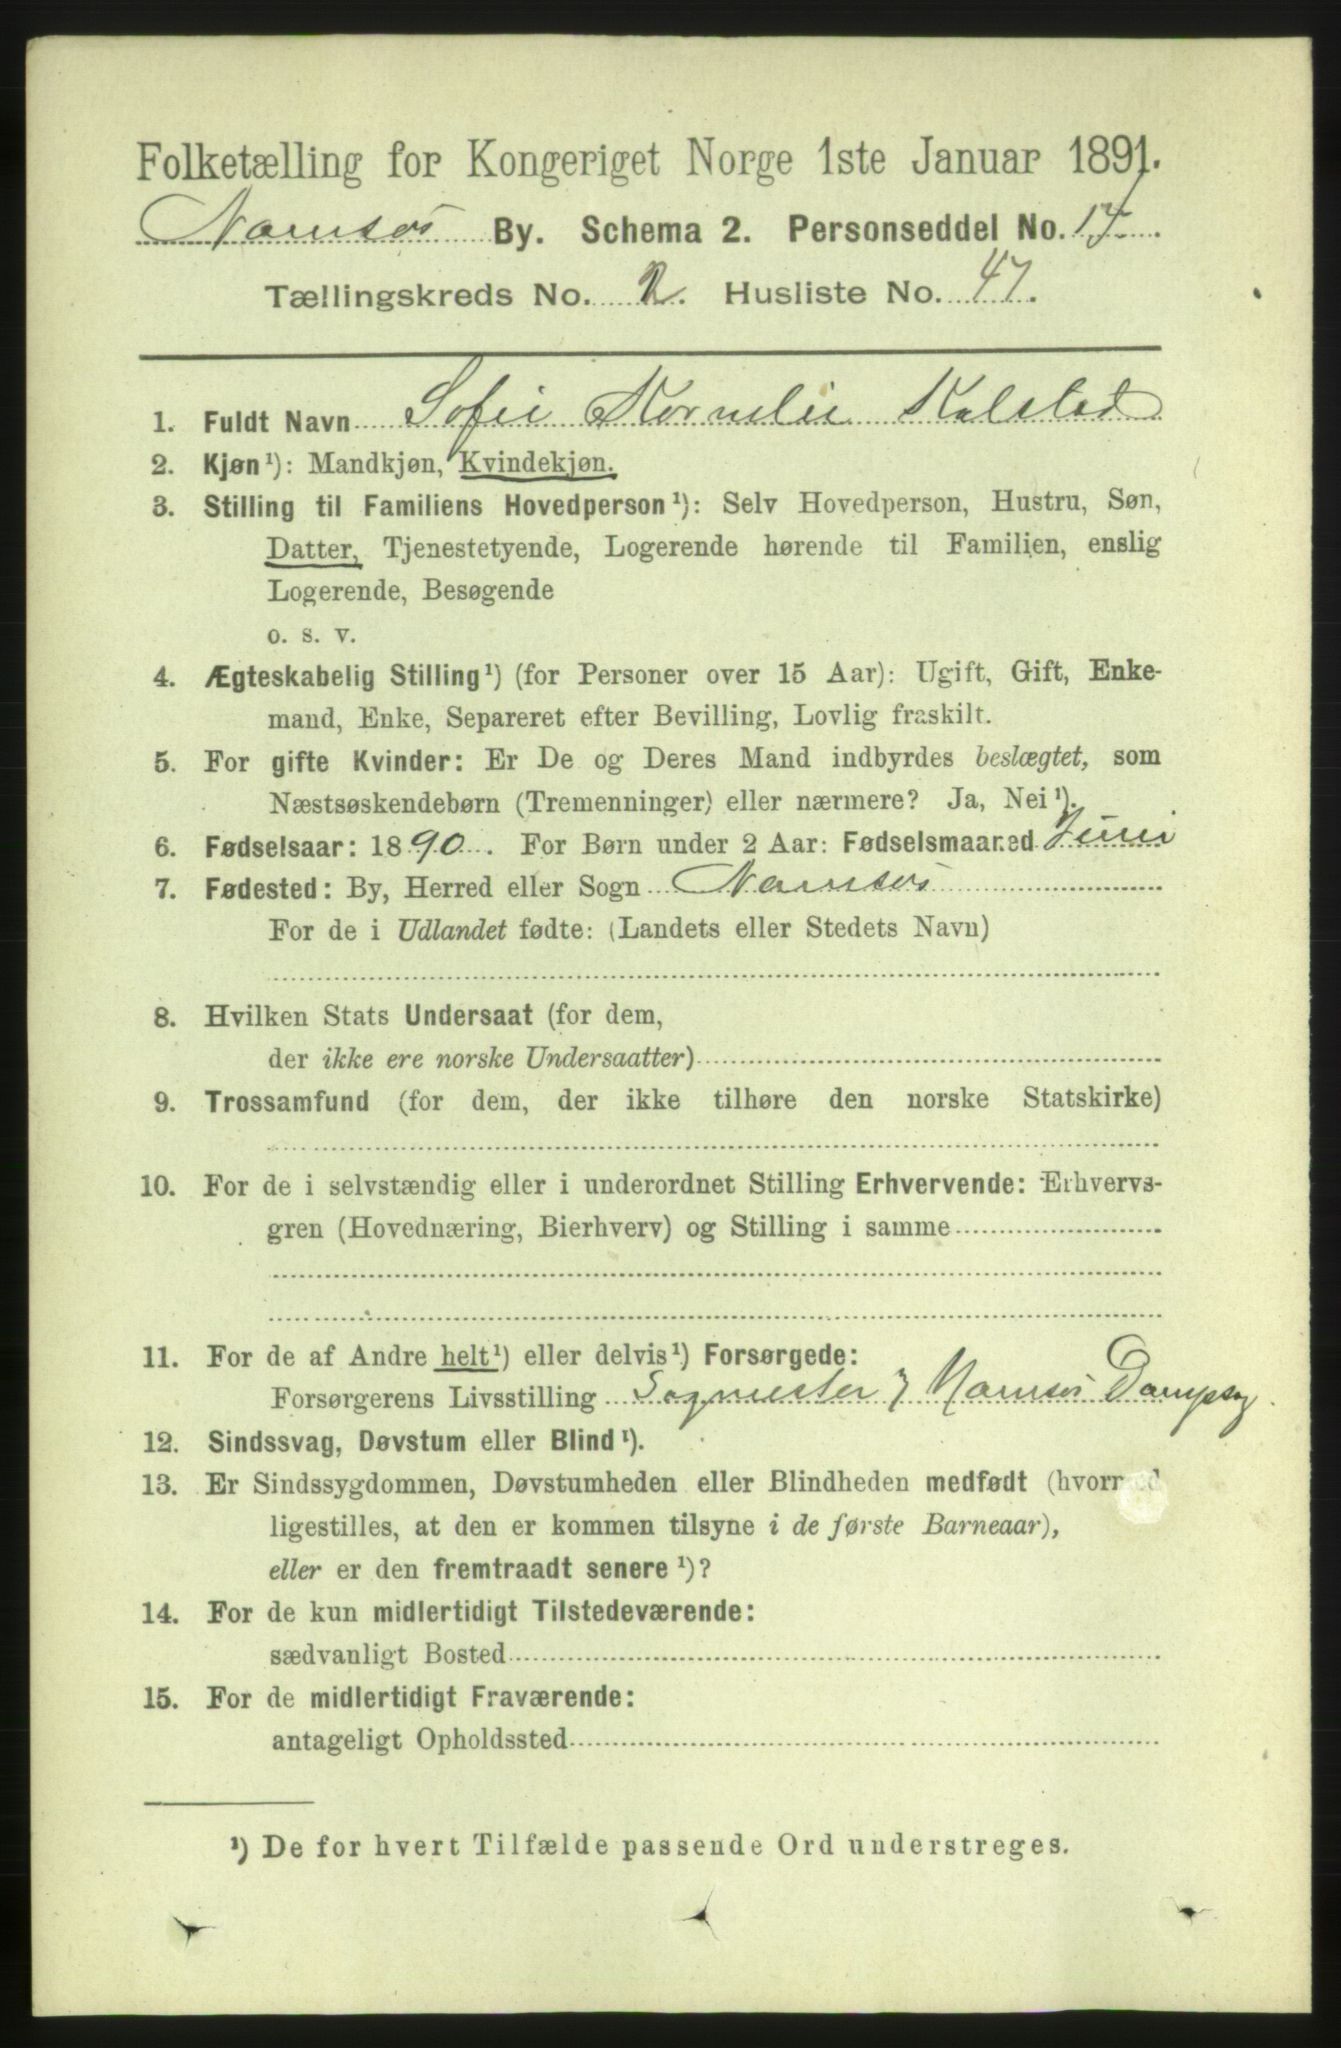 Folketælling for Kongeriget Norge 1ste Januar 1891.
Namsos By. Schema 2. Personseddel No. 17.
Tællingskreds No. 2. Husliste No. 47.
1. Fuldt Navn Sofie Kornelie Kalstad
2. Kjøn¹): Mandkjøn, Kvindekjøn.
3. Stilling til Familiens Hovedperson¹): Selv Hovedperson, Hustru, Søn,
Datter, Tjenestetyende, Logerende hørende til Familien, enslig
Logerende, Besøgende
o. s. v.
4. Ægteskabelig Stilling¹) (for Personer over 15 Aar): Ugift, Gift, Enke-
mand, Enke, Separeret efter Bevilling, Lovlig fraskilt.
5. For gifte Kvinder: Er De og Deres Mand indbyrdes beslægtet, som
Næstsøskendebørn (Tremenninger) eller nærmere? Ja, Nei¹).
6. Fødselsaar: 1890. For Børn under 2 Aar: Fødselsmaaned Juni
7. Fødested: By, Herred eller Sogn Namsos
For de i Udlandet fødte: (Landets eller Stedets Navn)
8. Hvilken Stats Undersaat (for dem,
der ikke ere norske Undersaatter)
9. Trossamfund (for dem, der ikke tilhøre den norske Statskirke)
10. For de i selvstændig eller i underordnet Stilling Erhvervende: Erhvervs-
gren (Hovednæring, Bierhverv) og Stilling i samme
11. For de af Andre helt¹) eller delvis¹) Forsørgede:
Forsørgerens Livsstilling Sagmester Namsos Dampsag
12. Sindssvag, Døvstum eller Blind¹).
13. Er Sindssygdommen, Døvstumheden eller Blindheden medfødt (hvormed
ligestilles, at den er kommen tilsyne i de første Barneaar),
eller er den fremtraadt senere¹)?
14. For de kun midlertidigt Tilstedeværende:
sædvanligt Bosted
15. For de midlertidigt Fraværende:
antageligt Opholdssted
¹) De for hvert Tilfælde passende Ord understreges.